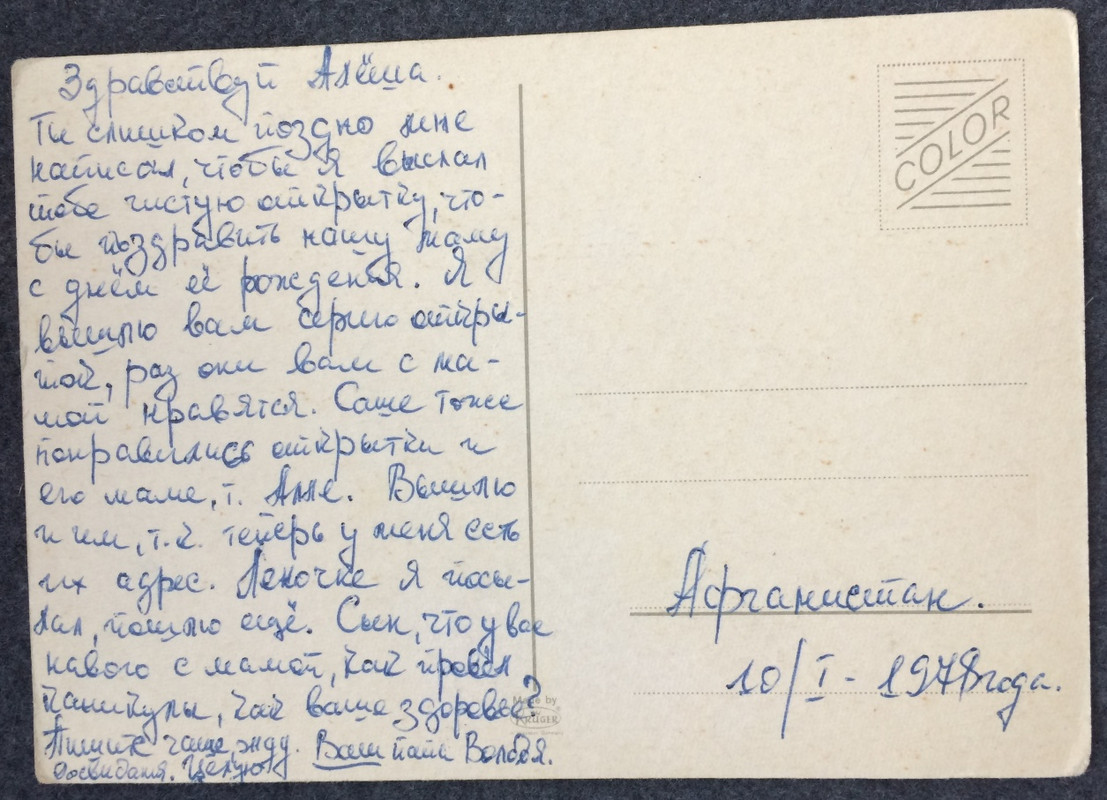 Здравствуй Алёша.
Ты слишком поздно мне
написал, чтобы я выслал
тебе чистую открытку, что-
бы поздравить нашу маму
с днём её рождения. Я
вышлю вам серию откры-
той, раз они вам с ма-
мой нравятся. Саше тоже
понравились открытки и
его маме, т. Алле. Вышлю
и им, т.к. теперь у меня есть
их адрес. Леночке я посы-
лал, пошлю ещё. Сын, что у вас
нового с мамой, как провёл
каникулы, как ваше здоровье?
Пишите чаще, жду. Ваш папа Володя.
Досвидания. Целую
COLOR
Афганистан.
10/I - 1978 года.
Made by
KRÜGER